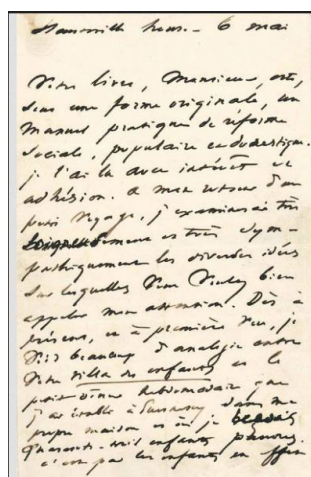 Hauteville house - 6 mai
Votre livre, Monsieur, est,
sous une forme originale, un
manuel pratique de réforme
sociale, populaire et domestique.
je l'ai lu avec intérêt et
adhésion. à mon retour d'un
petit voyage, j'examinerai très
soigneusement et très sym-
pathiquement les diverses idées
sur lesquelles vous voulez bien
appeler mon attention. Dès à
présent, et à première vue, je
vois beaucoup d'analogie entre
votre villa des enfants et le
petit dîner hebdomadaire que
j'ai établi à Guernesey dans ma
propre maison et où je
quarante-huit enfants pauvres.
c'est par les enfants en effet